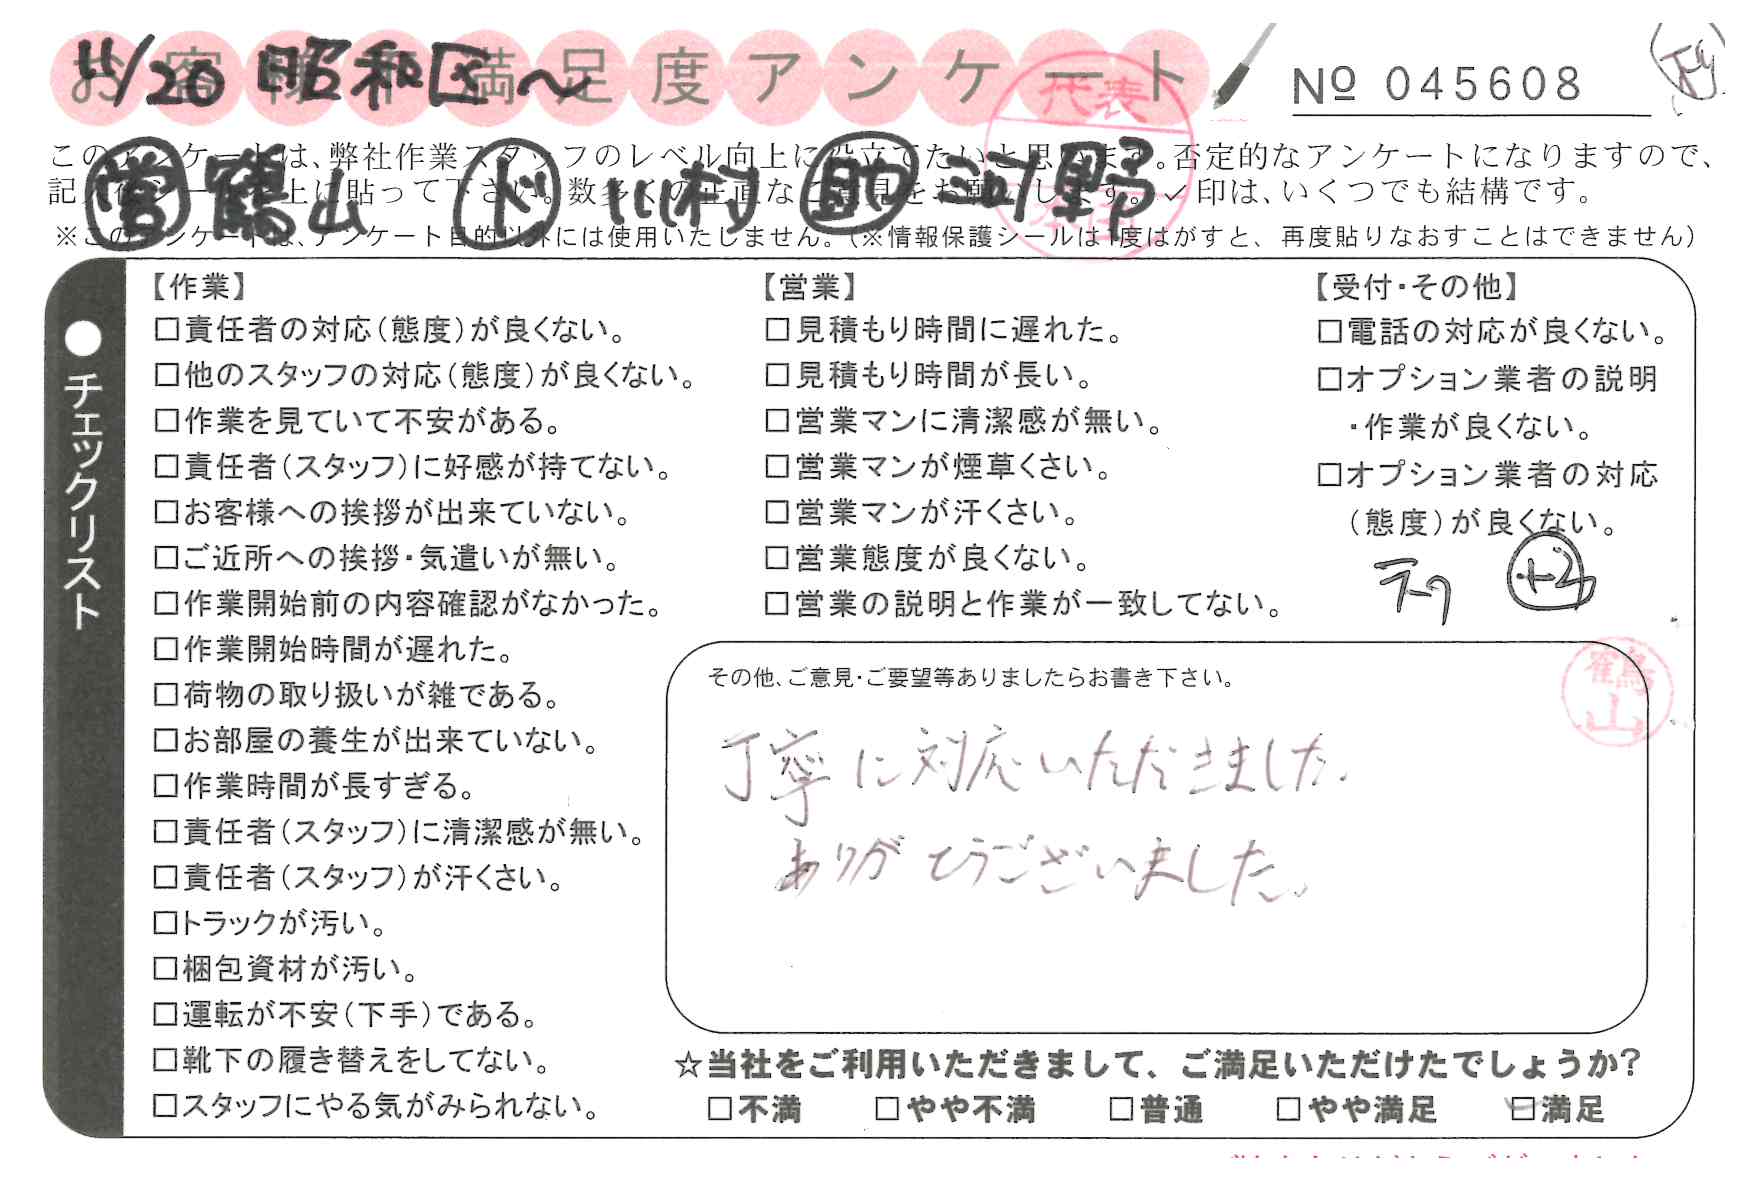 お客様の満足度アンケート
11/20 昭和区〜
№ 045608
代表
このアンケートは、弊社作業スタッフのレベル向上に役立てたいと思います。否定的なアンケートになりますので、
記入後シールを上に貼って下さい。数多くの正直なご意見をお願いします。✓印は、いくつでも結構です。
営 鶴山 ド 川村 助 河野
※このアンケートは、アンケート目的以外には使用いたしません。(※情報保護シールは1度はがすと、再度貼りなおすことはできません)
●チェックリスト
【作業】
□責任者の対応(態度)が良くない。
□他のスタッフの対応(態度)が良くない。
□作業を見ていて不安がある。
□責任者(スタッフ)に好感が持てない。
□お客様への挨拶が出来ていない。
□ご近所への挨拶・気遣いが無い。
□作業開始前の内容確認がなかった。
□作業開始時間が遅れた。
□荷物の取り扱いが雑である。
□お部屋の養生が出来ていない。
□作業時間が長すぎる。
□責任者(スタッフ)に清潔感が無い。
□責任者(スタッフ)が汗くさい。
□トラックが汚い。
□梱包資材が汚い。
□運転が不安(下手)である。
□靴下の履き替えをしてない。
□スタッフにやる気がみられない。
【営業】
□見積もり時間に遅れた。
□見積もり時間が長い。
□営業マンに清潔感が無い。
□営業マンが煙草くさい。
□営業マンが汗くさい。
□営業態度が良くない。
□営業の説明と作業が一致してない。
【受付・その他】
□電話の対応が良くない。
□オプション業者の説明
・作業が良くない。
□オプション業者の対応
(態度)が良くない。
その他、ご意見・ご要望等ありましたらお書き下さい。
鶴山
丁寧に対応いただきました。
ありがとうございました。
☆当社をご利用いただきまして、ご満足いただけたでしょうか?
□不満 □やや不満 □普通 □やや満足 ☑満足